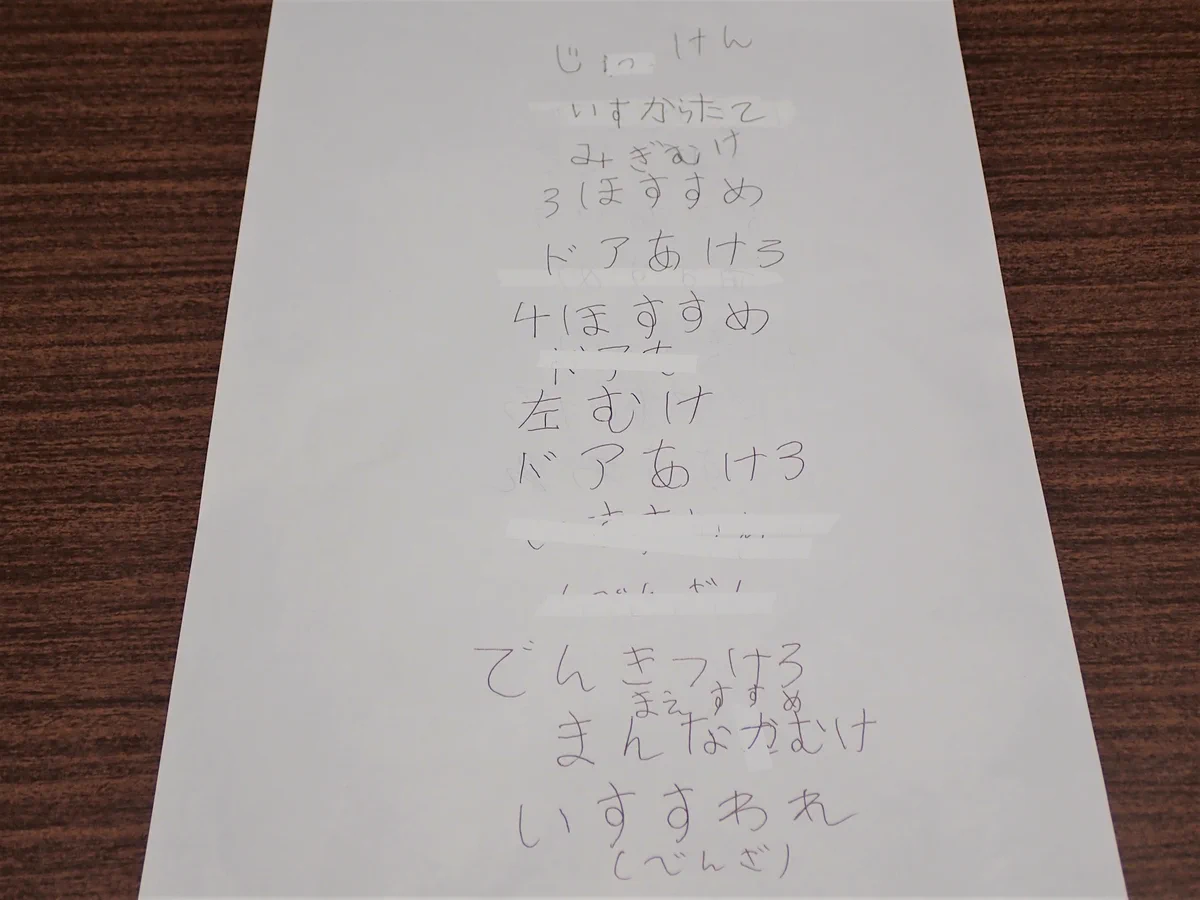 じっけん
いすからたて
みぎむけ
3ほすすめ
ドアあけろ
4ほすすめ
左むけ
ドアあけろ
でんきつけろ
まえすすめ
まんなかむけ
いすすわれ
(でんざ)